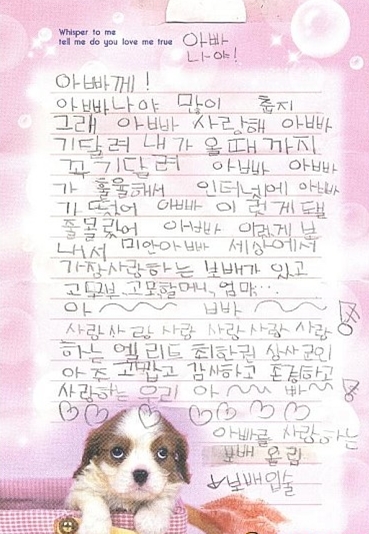 Whisper to me
tell me do you love me true
아빠
나야!
아빠께!
아빠나야 많이 춥지
그래 아빠 사랑해 아빠
기달려 내가 올때까지
꼭 기달려 아빠 아빠
가 훌륭해서 인터넷에 아빠
가 떴어 아빠 이렇게 될
줄몰랐어 아빠 이렇게 보
내서 미안아빠 세상에서
가장사랑하는 보배가 있고
고모부 고모할머니, 엄마...
아 빠
사랑사랑 사랑 사랑사랑 사랑
하는 엘리트 최한권 상사 군인
아주 고맙고 감사하고 존경하고
사랑하는 우리 아 빠
아빠를 사랑하는
보배 올림
보배입술